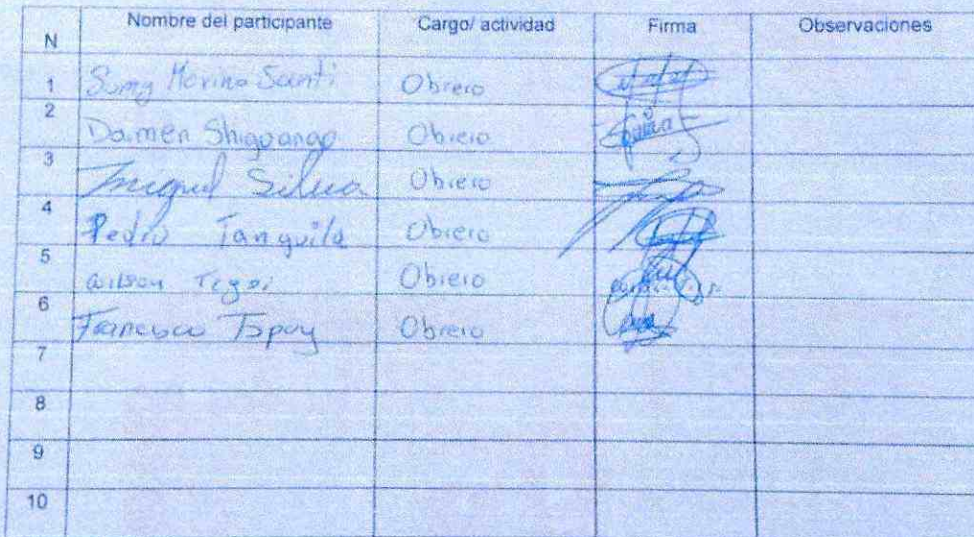 N Nombre del participante Cargo/ actividad Firma Observaciones
1 Merino Santi Obrero
2 Daimen Shiguango Obrero
3 Miguel Silva Obrero
4 Pedro Tanguila Obrero
5 Wilson Obrero
6 Francisco Obrero
7
8
9
10